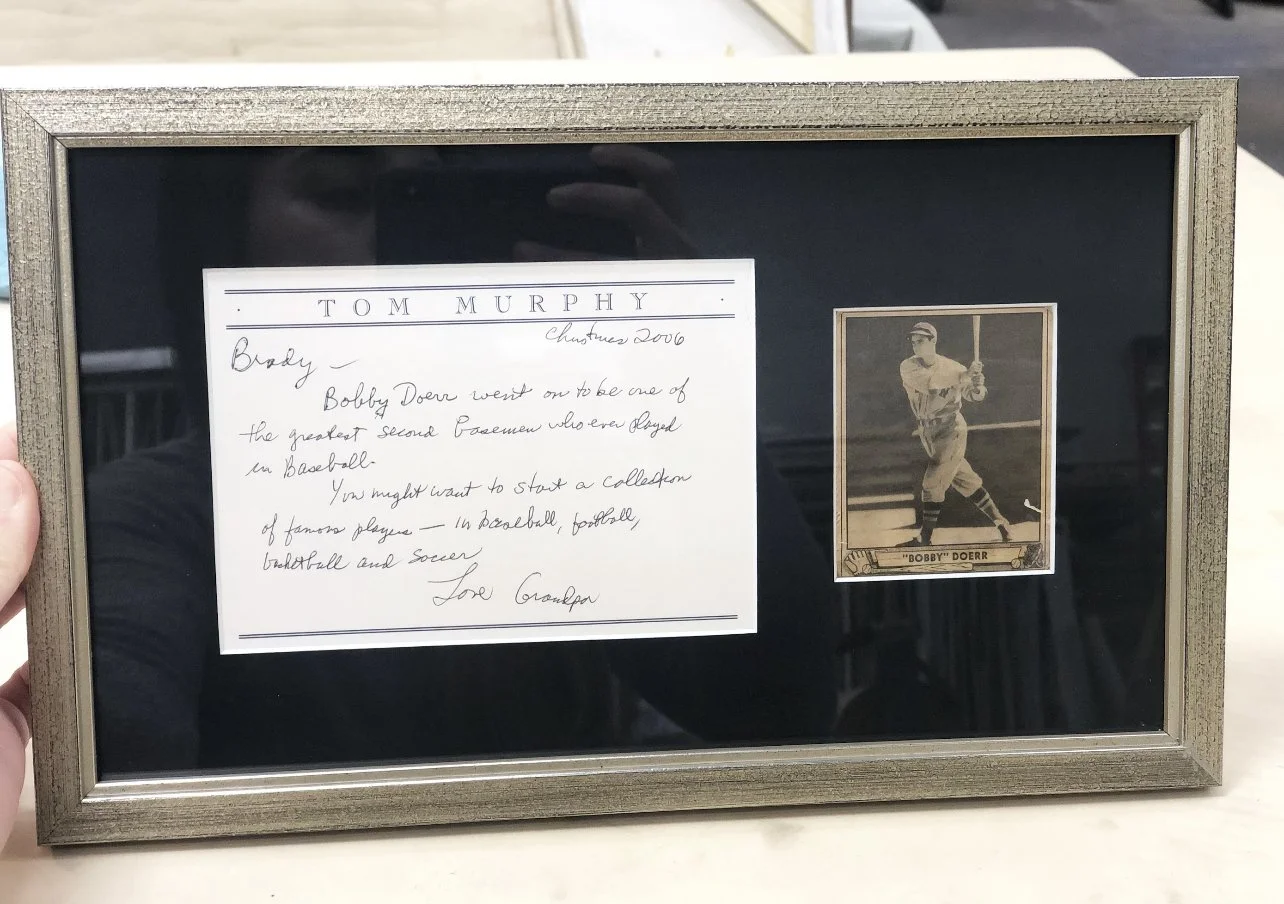 TOM MURPHY
Christmas 2006
Brady —
Bobby Doerr went on to be one of
the greatest second basemen who ever played
in Baseball.
You might want to start a collection
of famous players — in baseball, football,
basketball and soccer
Love Grandpa
"BOBBY" DOERR